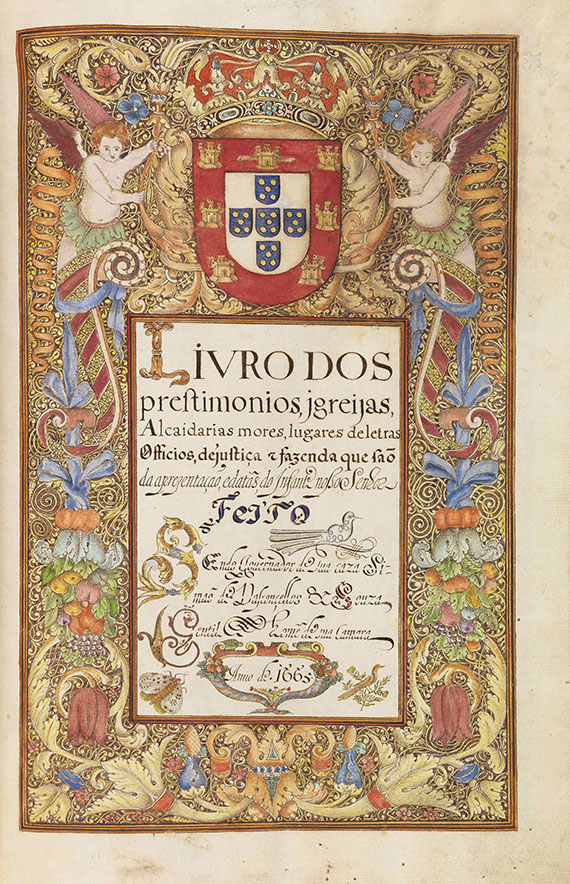 LIVRO DOS
prestimonios, jgreijas,
Alcaidarias mores, lugares de letras
Officios, dejustiça & fazenda que saõ
da apresentaçaõ, edatas do Infante nosso Senhor
FEITO
Sendo Gouernador de sua caza Si-
maõ de Vasconcellos & Souza
Gentil Home de sua Camara
Anno de 1665